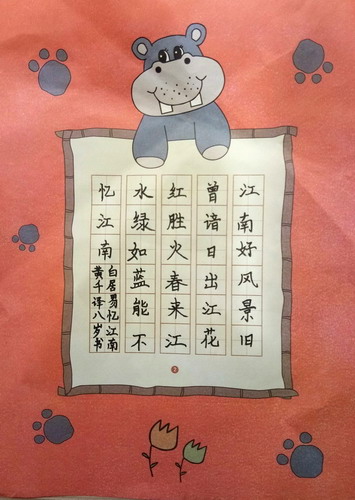 江南好风景旧
曾谙日出江花
红胜火春来江
水绿如蓝能不
忆江南
白居易忆江南
黄千译八岁书
2